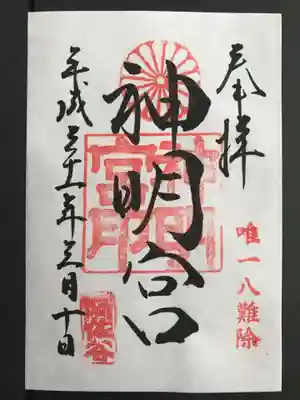 奉拝
唯一八難除
神明宮
平成三十一年三月十日
阿佐谷